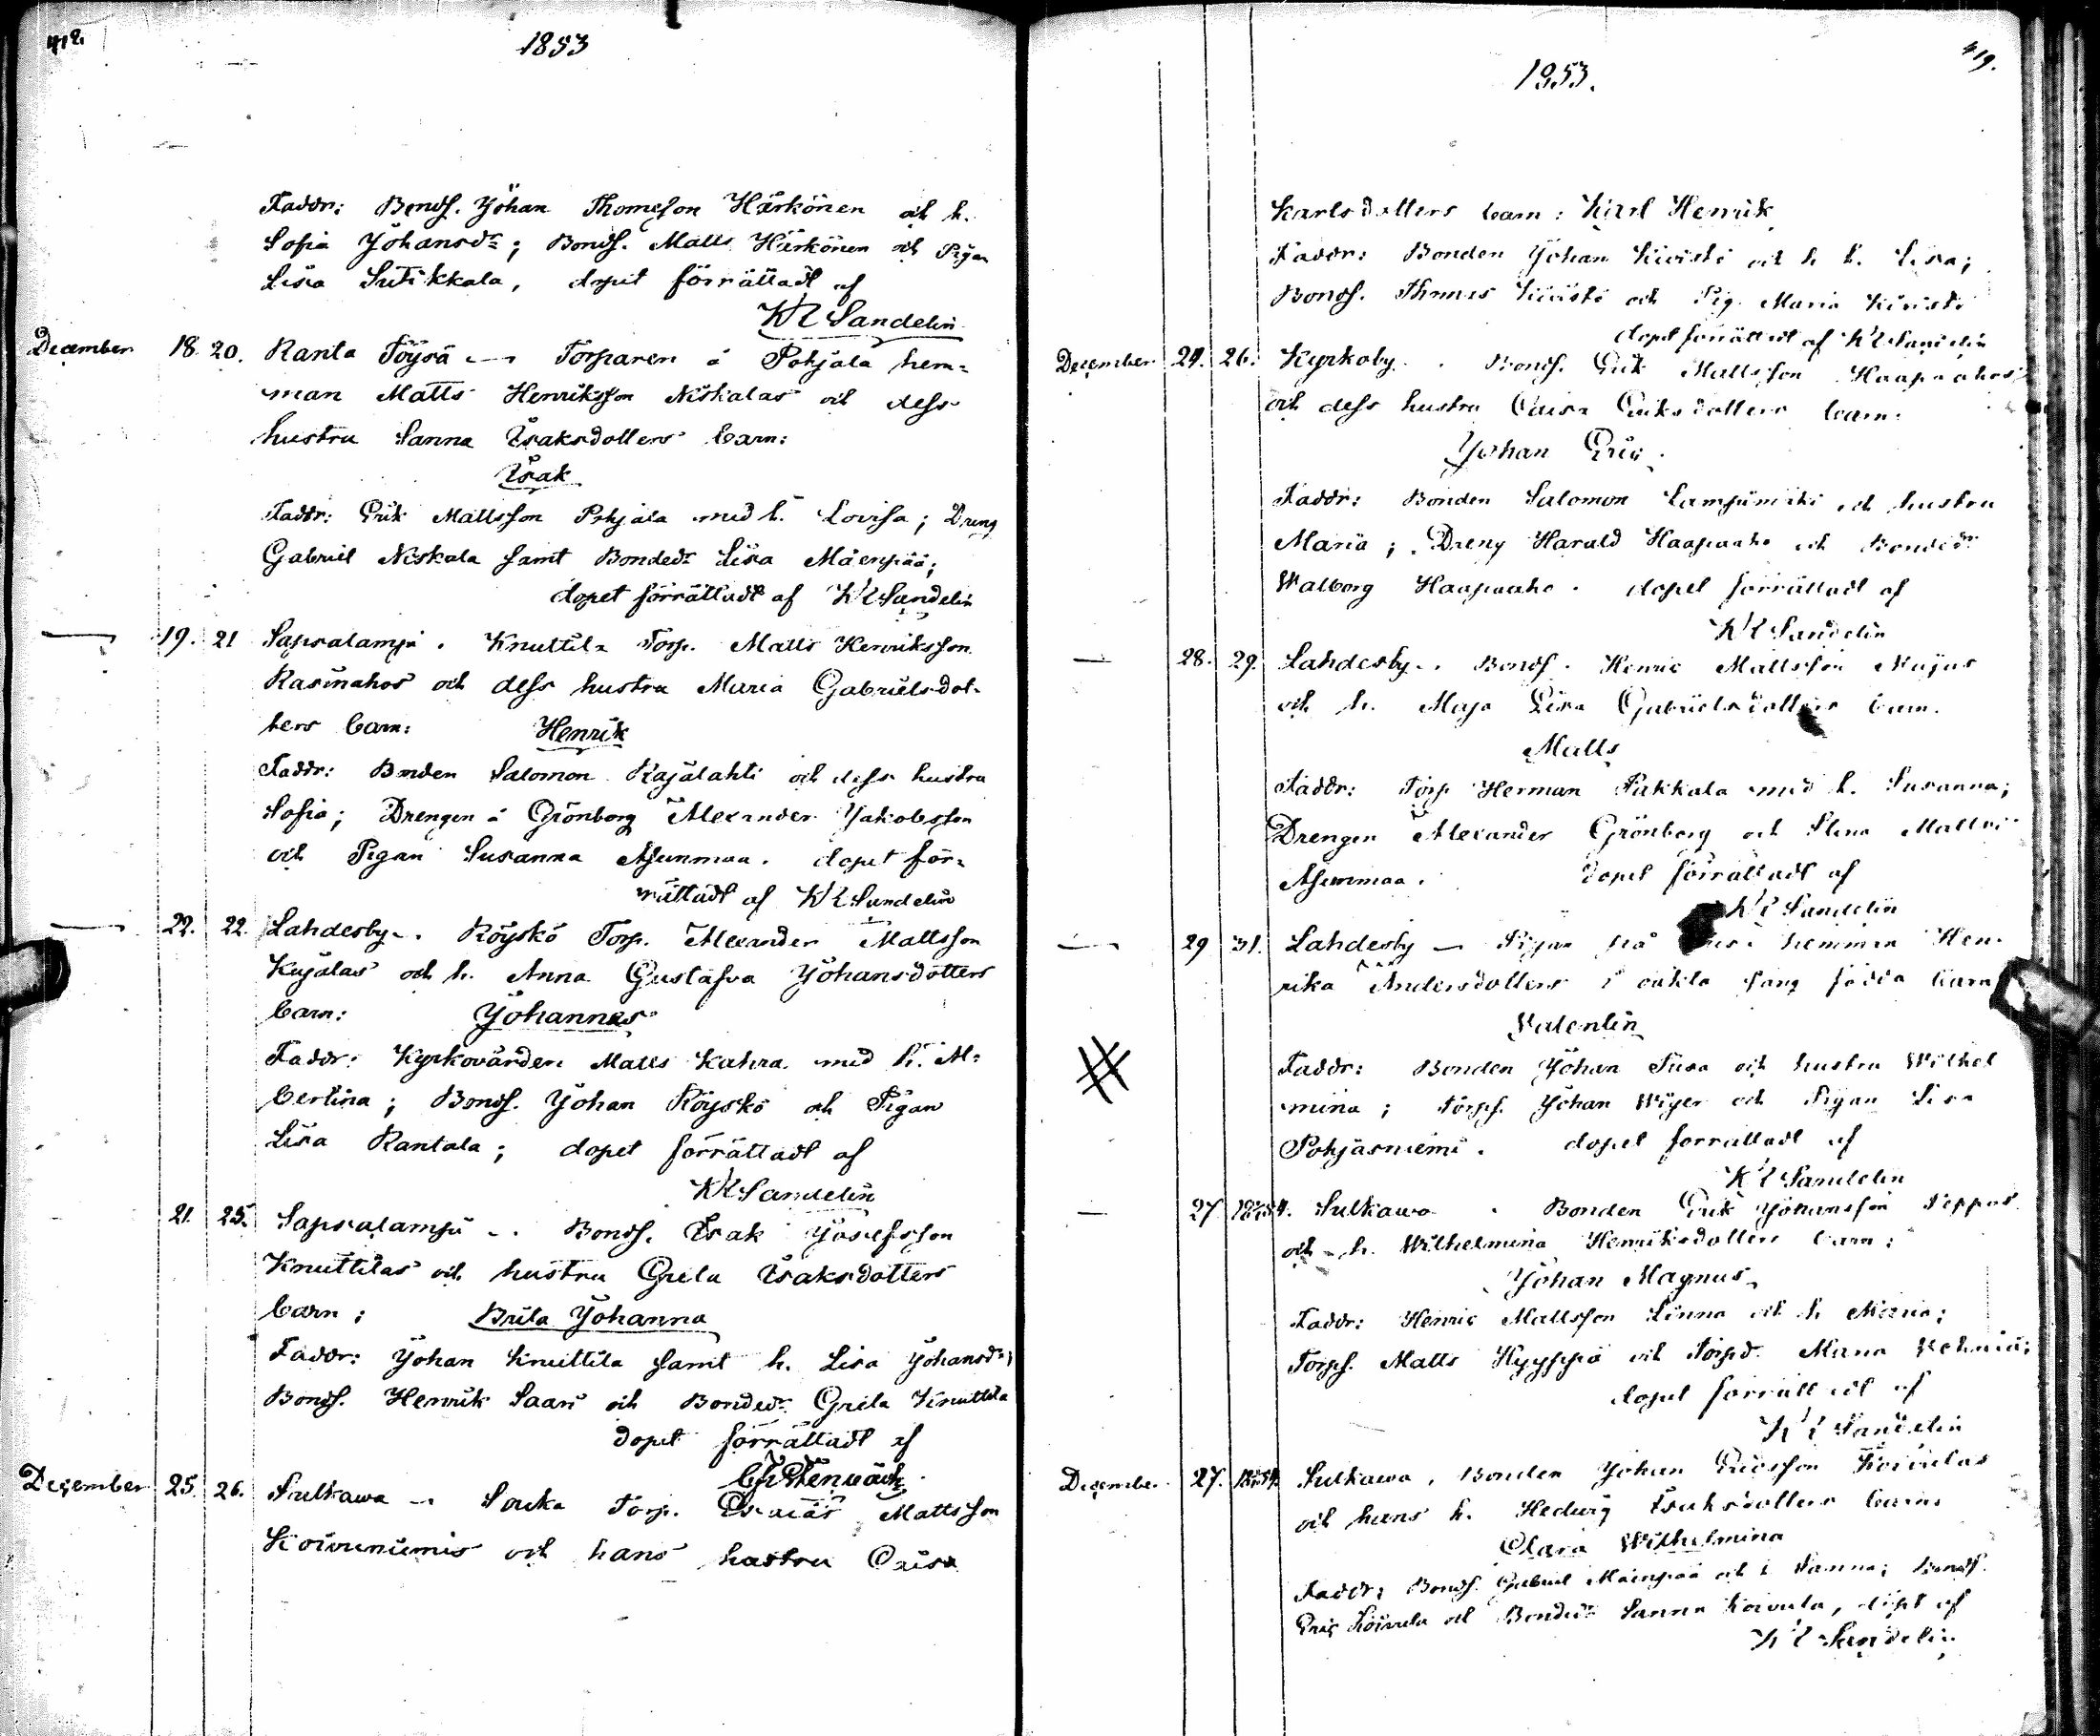 412.
1853
Faddr: Bonds. Johan Thomesson Härkönen och h.
Sofia Johansdr; Bonds. Matts Härkönen och Pigan
Lisa Sutikkala, dopet förrättadt af
KE Sandelin
December 18. 20. Ranta Töysä — Torparen å Pohjala hem=
man Matts Henriksson Niskalas och dess
hustru Sanna Isaksdotters barn:
Isak
Faddr: Erik Mattsson Pohjala med h. Lovisa; Dreng
Gabriel Niskala samt Bondedr Lisa Mäenpää;
dopet förrättadt af KE Sandelin
— 19. 21 Sapsalampi. Knuttila Torp. Matts Henriksson
Rasinahos och dess hustru Maria Gabrielsdot-
ters barn: Henrik
Faddr: Bonden Salomon Rajalahti och dess hustru
Sofia; Drengen å Grönborg Alexander Jakobsson
och Pigan Susanna Asunmaa. dopet för=
rättadt af KE Sandelin
— 22. 22. Lahdesby. Röyskö Torp. Alexander Mattsson
Kujalas och h. Anna Gustafva Johansdotters
barn: Johannes
Faddr: Kyrkovärden Matts Kahra med h. Al=
bertina; Bonds. Johan Röyskö och Pigan
Lisa Rantala; dopet förrättadt af
KE Sandelin
21. 25. Sapsalampi. Bonds. Isak Josefsson
Knuttilas och hustru Greta Isaksdotters
barn: Brita Johanna
Faddr: Johan Knuttila samt h. Lisa Johansdr;
Bonds. Henrik Saari och Bondedr Greta Knuttila
dopet förrättadt af
December 25. 26. Sulkawa — Souka Torp. Esaias Mattsson
Koivuniemis och hans hustru Caisa
419.
1853.
Karlsdotters barn: Karl Henrik
Faddr: Bonden Johan Kivistö och h. Lisa;
Bonds. Thomas Kivistö och Pig. Maria Kivistö
dopet förrättadt af KE Sandelin
December 24. 26. Kyrkoby. Bonds. Erik Mattsson Haapaahos
och dess hustru Caisa Eriksdotters barn:
Johan Eric
Faddr: Bonden Salomon Lampimäki och hustru
Maria; Dreng Harald Haapaaho och Bondedr
Walborg Haapaaho. dopet förrättadt af
KE Sandelin
— 28. 29. Lahdesby. Bonds. Henric Mattsson Majas
och h. Maja Lisa Gabrielsdotters barn.
Matts
Faddr: Torp Herman Pakkala med h. Susanna;
Drengen Alexander Grönborg och Stina Mattsdr
Asunmaa. dopet förrättadt af
KE Sandelin
— 29 31. Lahdesby — Pigan på hemman Hen-
rika Andersdotters i oäkta säng födda barn
Valentin
Faddr: Bonden Johan Susa och hustru Wilhel
mina; Torps. Johan Wiger och Pigan Lisa
Pohjasniemi. dopet förrättadt af
KE Sandelin
— 27 Sulkawa. Bonden Erik Johansson Seppas
och h. Wilhelmina Henriksdotters barn:
Johan Magnus
Faddr: Henric Mattsson Linna och h Maria;
Torps. Matts Hyyppä och Torpd. Maria
dopet förrättadt af
KE Sandelin
December 27. Sulkawa, Bonden Johan Ericsson Koivulas
och hans h. Hedwig Isaksdotters barn
Clara Wilhelmina
Faddr: Bonds. Gabriel Mäenpää och h Sanna; Bonds.
Eric Koivula och Bondedr Sanna Koivula, döpt af
KE Sandelin